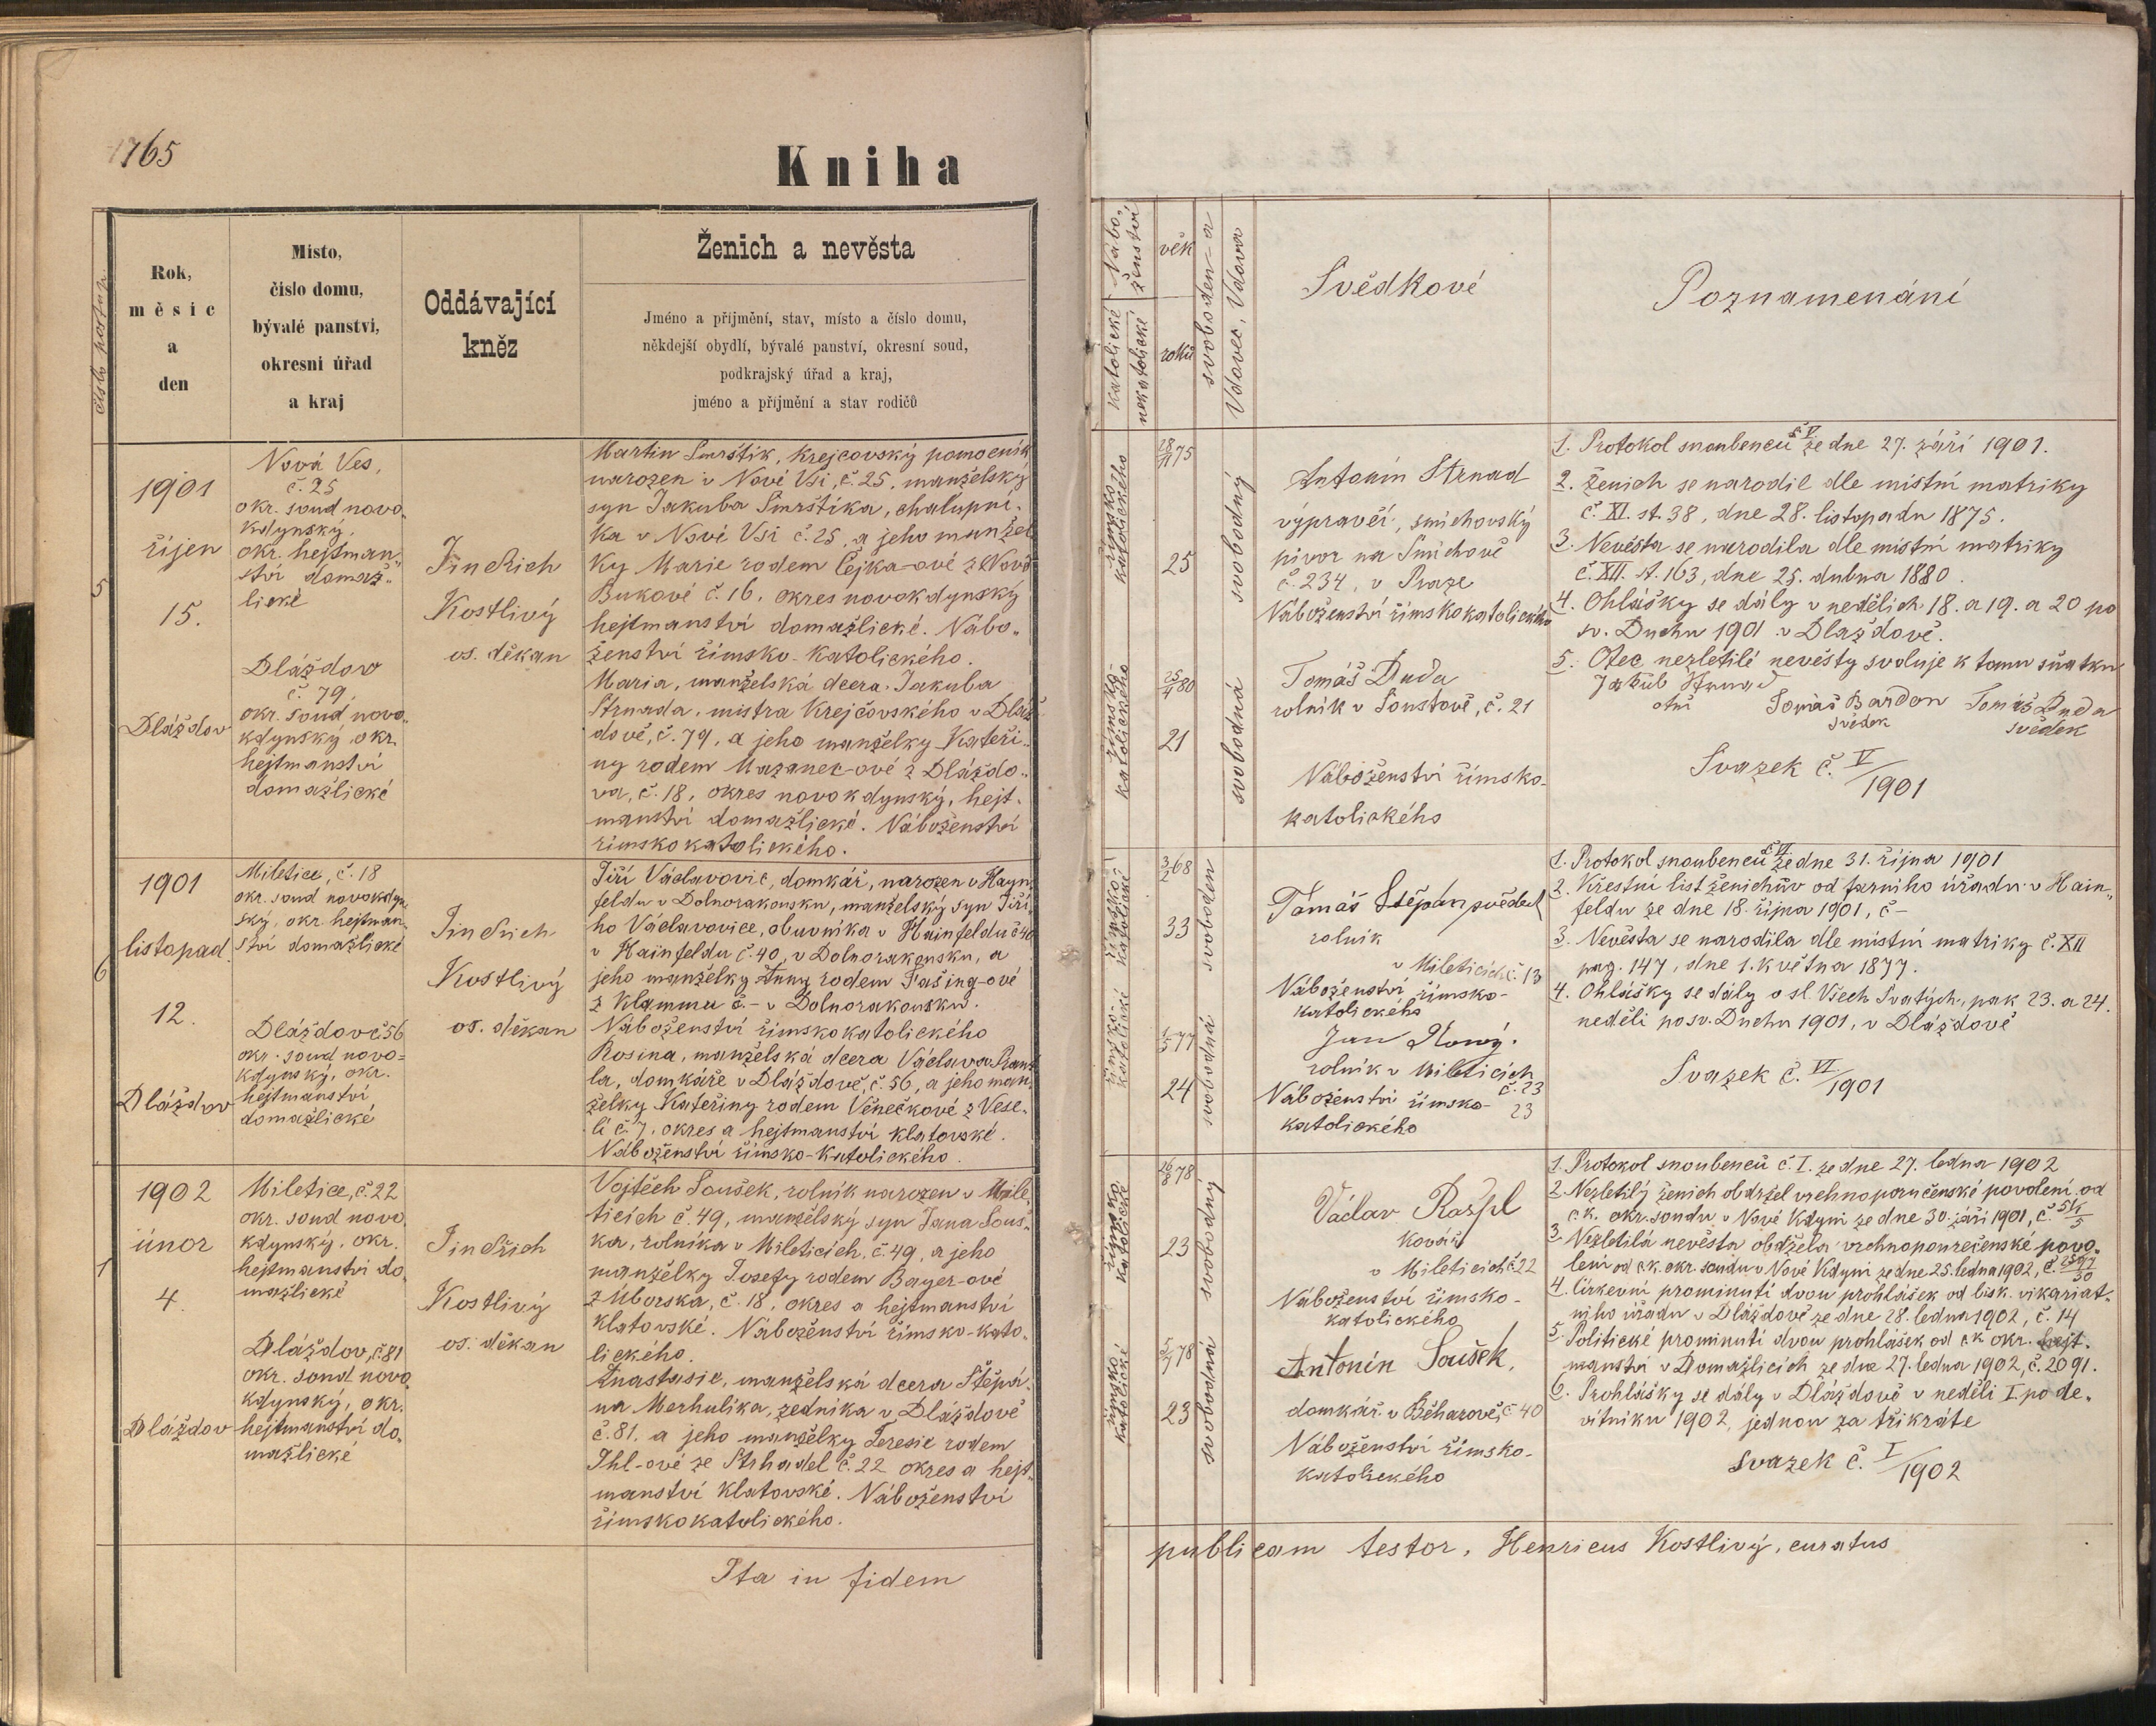 1765
Kniha
číslo postup.
Rok,
měsíc
a
den
Místo,
číslo domu,
bývalé panství,
okresní úřad
a kraj
Oddávající
kněz
Ženich a nevěsta
Jméno a příjmění, stav, místo a číslo domu,
někdejší obydlí, bývalé panství, okresní soud,
podkrajský úřad a kraj,
jméno a příjmění a stav rodičů
5
1901
říjen
15.
Dláždov
Nová Ves,
č. 25
okr. soud novo-
kdynský,
okr. hejtman-
ství domaž-
lické
Dláždov
č. 79,
okr. soud novo-
kdynský, okr.
hejtmanství
domažlické
Jindřich
Kostlivý
os. děkan
Martin Smrštík, krejčovský pomocník
narozen v Nové Vsi, č. 25, manželský
syn Jakuba Smrštíka, chalupní-
ka v Nové Vsi č. 25, a jeho manžel
ky Marie rodem Čejka-ové z Nové
Bukové č. 16, okres novokdynský
hejtmanství domažlické. Nábo-
ženství římsko-katolického.
Maria, manželská dcera Jakuba
Strnada, mistra krejčovského v Dláž-
dově, č. 79, a jeho manželky Kateři-
ny rodem Mazanec-ové z Dláždo-
va, č. 18, okres novokdynský, hejt-
manství domažlické. Náboženství
římskokatolického.
6
1901
listopad
12.
Dláždov
Miletice, č. 18
okr. soud novokdyn-
ský, okr. hejtman-
ství domažlické
Dláždov č 56
okr. soud novo-
kdynský, okr.
hejtmanství
domažlické
Jindřich
Kostlivý
os. děkan
Jiří Václavovic, domkář, narozen v Hayn-
feldu v Dolnorakousku, manželský syn Jiří-
ho Václavovice, obuvníka v Hainfeldu č 40
v Hainfeldu č. 40, v Dolnorakousku, a
jeho manželky Anny rodem Fašing-ové
z Klammu č - v Dolnorakousku.
Náboženství římskokatolického
Rosina, manželská dcera Václava
la, domkáře v Dláždově, č. 56, a jeho man-
želky Kateřiny rodem Věnečkové z Vese-
lí č. 7, okres a hejtmanství klatovské.
Náboženství římsko-katolického.
1
1902
únor
4.
Dláždov
Miletice, č. 22
okr. soud novo-
kdynský, okr.
hejtmanství do-
mažlické
Dláždov, č. 81
okr. soud novo
kdynský, okr.
hejtmanství do-
mažlické
Jindřich
Kostlivý
os. děkan
Vojtěch Soušek, rolník narozen v Mile-
ticích č. 49, manželský syn Jana Souš-
ka, rolníka v Mileticích, č. 49, a jeho
manželky Josefy rodem Bayer-ové
z Úborska, č. 18, okres a hejtmanství
klatovské. Náboženství římsko-kato-
lického.
Anastasie, manželská dcera Štěpá-
na Merhulika, zedníka v Dláždově
č. 81, a jeho manželky Teresie rodem
Ihl-ové ze Strhadel č. 22 okres a hejt-
manství klatovské. Náboženství
římskokatolického.
Ita in fidem
Nábo-
ženství
katolické
nekatolické
věk
roků
svoboden-a
Vdovec, Vdova
Svědkové
Poznamenání
římsko
katolického
28/11 75
25
svobodný
římsko-
katolického
25/4 80
21
svobodná
Antonín Strnad
výpravčí, smíchovský
pivov na Smíchově
č. 234, v Praze
Náboženství římskokatolického
Tomáš Duda
rolník v Soustově, č. 21
Náboženství římsko-
katolického
1. Protokol snoubenců č V ze dne 27. září 1901.
2. Ženich se narodil dle místní matriky
č. XI. st. 38, dne 28. listopadu 1875.
3. Nevěsta se narodila dle místní matriky
č. XII. st. 163, dne 25. dubna 1880.
4. Ohlášky se dály v nedělích 18. a 19. a 20 po
sv. Duchu 1901 v Dlaždově.
5. Otec nezletilé nevěsty svoluje k tomu sňatku
Jakub Strnad
Tomáš Bardon
Tomáš Duda
svědek
svědek
Svazek č. V/1901
římsko-
katolické
3/2 68
33
svoboden
římsko-
katolické
1/5 77
24
svobodná
Tomáš Štěpán svědek
rolník
v Mileticích č. 13
Náboženství římsko-
katolického
Jan Nový.
rolník v Mileticích
č. 23
Náboženství římsko-
23
katolického
1. Protokol snoubenců č VI ze dne 31. října 1901
2. Křestní list ženichův od farního úřadu v Hain-
feldu ze dne 18. října 1901, č -
3. Nevěsta se narodila dle místní matriky č. XII
pag. 147, dne 1. května 1877.
4. Ohlášky se dály o sl. Všech Svatých, pak 23. a 24.
neděli po sv. Duchu 1901, v Dláždově
Svazek č. VI/1901
římsko
katolické
26/8 78
23
svobodný
římsko
katolické
5/7 78
23
svobodná
Václav Rašpl
kovář
v Mileticích č 22
Náboženství římsko-
katolického
Antonín Soušek,
domkář v Běhařově, č 40
Náboženství římsko-
katolického
1. Protokol snoubenců č. I. ze dne 27. ledna 1902
2. Nezletilý ženich obdržel vrchnoporučenské povolení od
c. k. okr. soudu v Nové Kdyni ze dne 30. září 1901, č.
3. Nezletilá nevěsta obdržela vrchnoporučenské povo-
lení od c.k. okr. soudu v Nové Kdyni ze dne 25. ledna 1902, č.
4. Církevní prominutí dvou prohlášek od bisk. vikariat-
ního úřadu v Dláždově ze dne 28. ledna 1902, č. 14
5. Politické prominutí dvou prohlášek od c.k. okr. hejt-
manství v Domažlicích ze dne 27. ledna 1902, č. 2091.
6. Prohlášky se dály v Dláždově v neděli I. po de-
vítníku 1902, jednou za třikráte
Svazek č. I/1902
publicam testor, Henricus Kostlivý, curatus